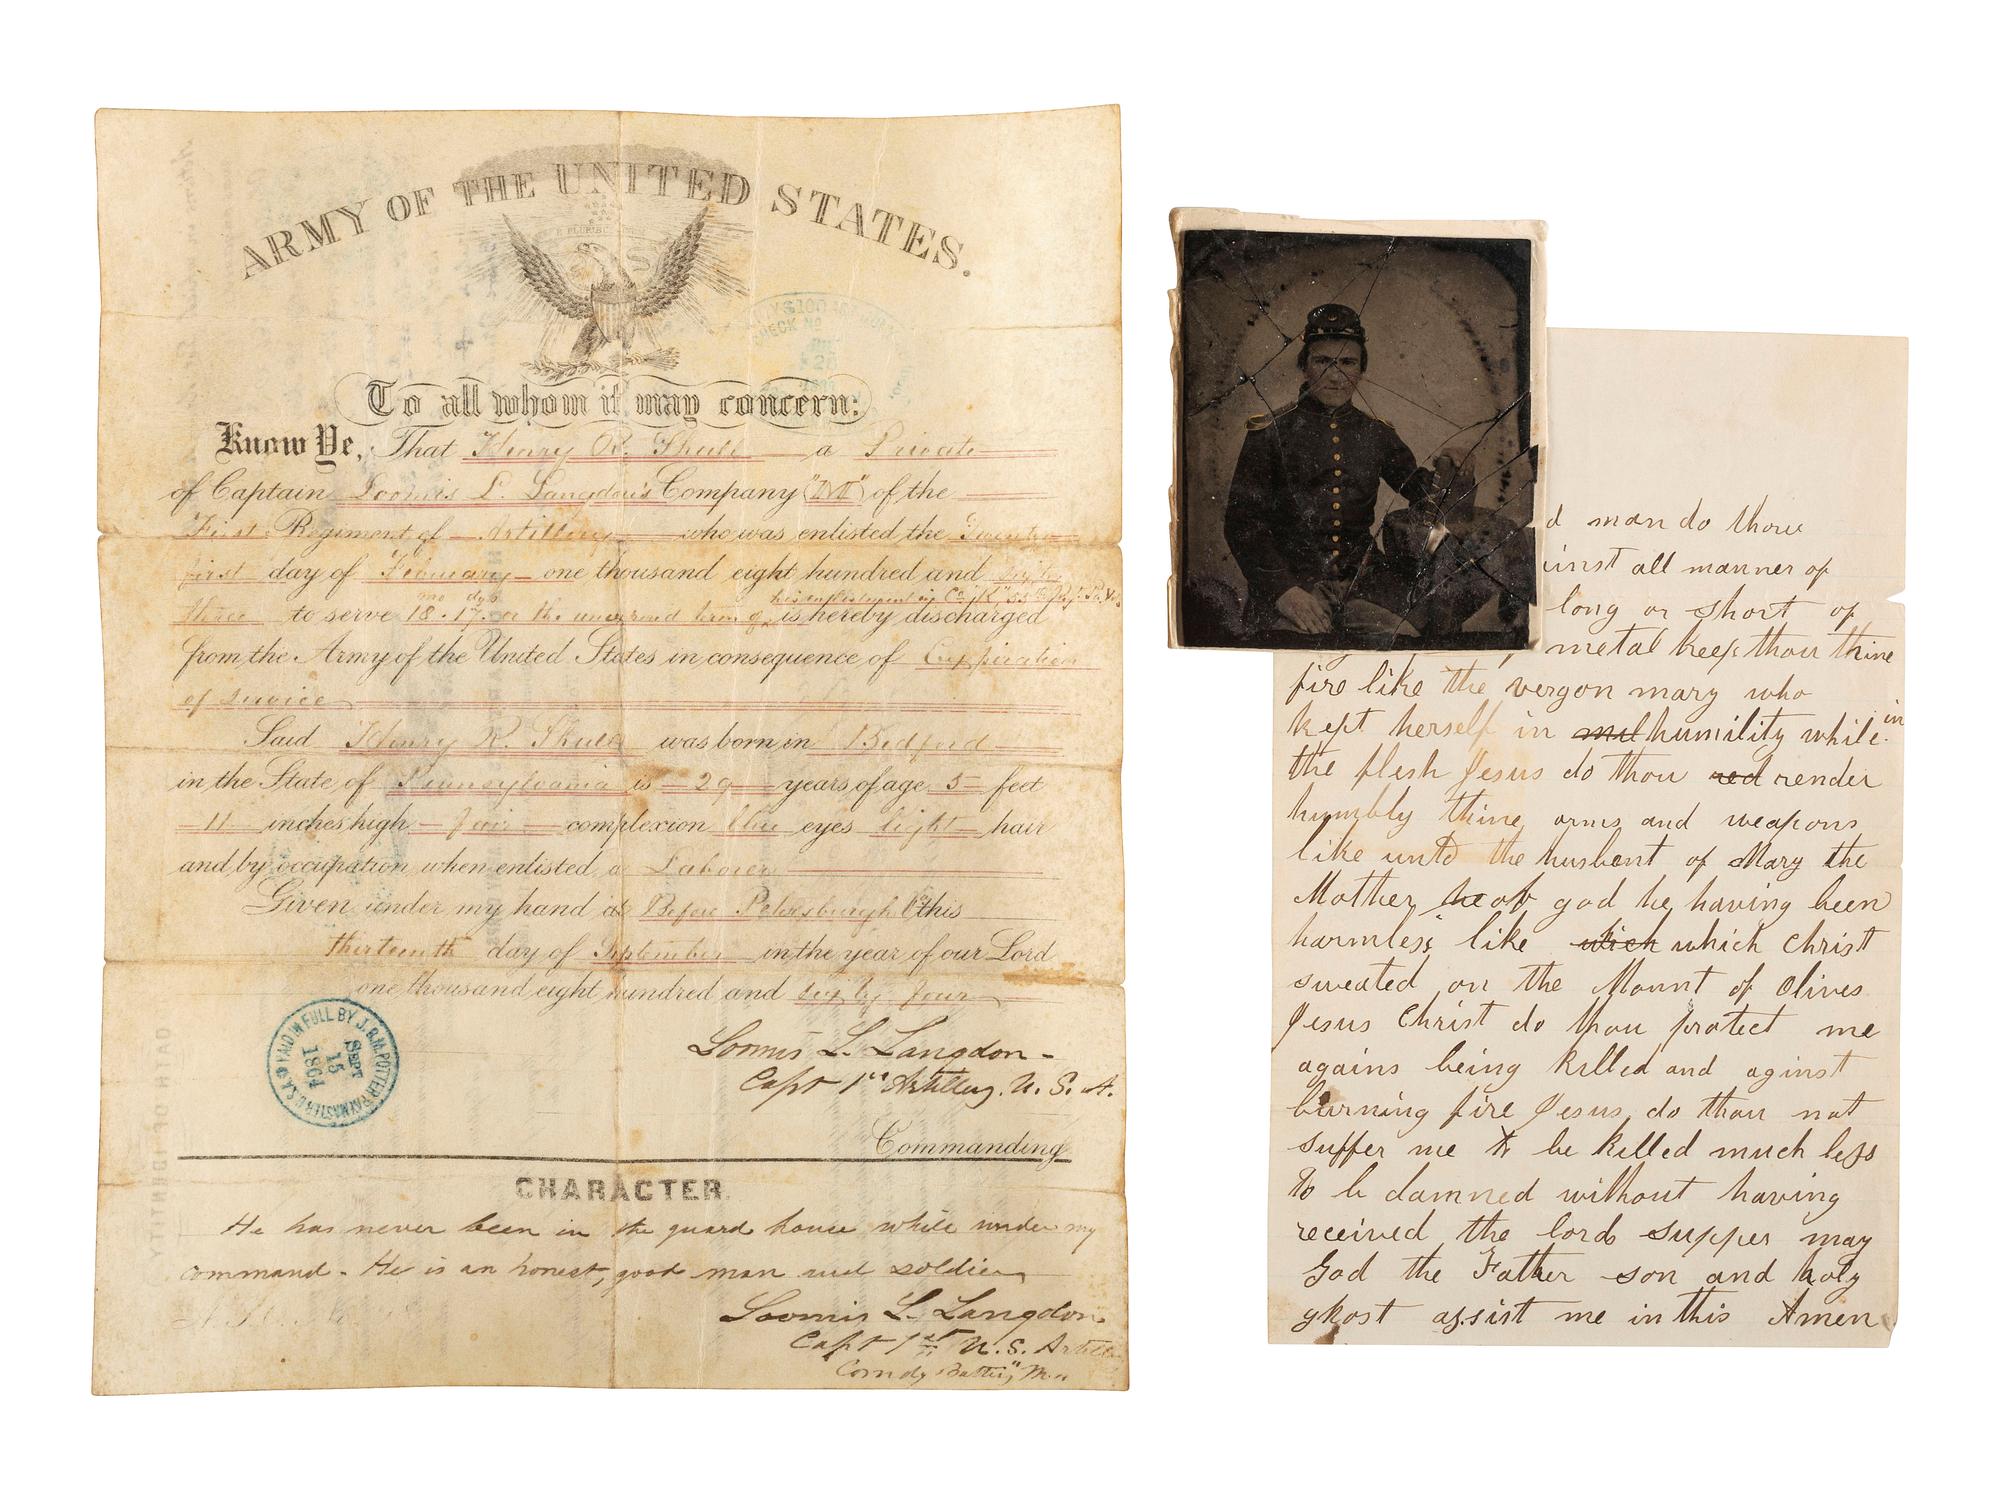 ARMY OF THE UNITED STATES.
E PLURIBUS
CHECK No
To all whom it may concern:
Know Ye, That Henry R. Shull a Private
of Captain Loomis L. Langdon's Company ("M") of the
First Regiment of Artillery who was enlisted the Twenty
first day of February one thousand eight hundred and sixty
mo dys his enlistment in Co. "K" 55th
three to serve 18.17. or the unexpired term of is hereby discharged
from the Army of the United States in consequence of Expiration
of service
Said Henry R. Shull was born in Bedford
in the State of Pennsylvania is 29 years of age 5 feet
11 inches high fair complexion blue eyes light hair
and by occupation when enlisted a Laborer
Given under my hand at Before Petersburgh Va this
thirteenth day of September in the year of our Lord
one thousand eight hundred and sixty four
PAID IN FULL BY J. B. M. POTTER PAYMASTER U.S.A.
SEPT
15
1864
Loomis L. Langdon -
Capt 1st Artillery. U. S. A.
Commanding
CHARACTER.
He has never been in the guard house while under my
command - He is an honest, good man and soldier
Loomis L. Langdon
Capt 1st U.S. Artill
Comdg Batty "M"
OATH OF IDENTITY
d man do thou
inst all manner of
long or short of
metal keep thou thine
fire like the vergon mary who
kept herself in mil humility while in
the flesh Jesus do thou red render
humbly thine arms and weapons
like unto the husbent of Mary the
Mother he of god he having been
harmless like which which Christ
sweated on the Mount of Olives
Jesus Christ do thou protect me
agains being killed and aginst
burning fire Jesus do thou not
suffer me to be killed much less
to b damned without having
received the lords supper may
God the Father son and holy
ghost assist me in this Amen